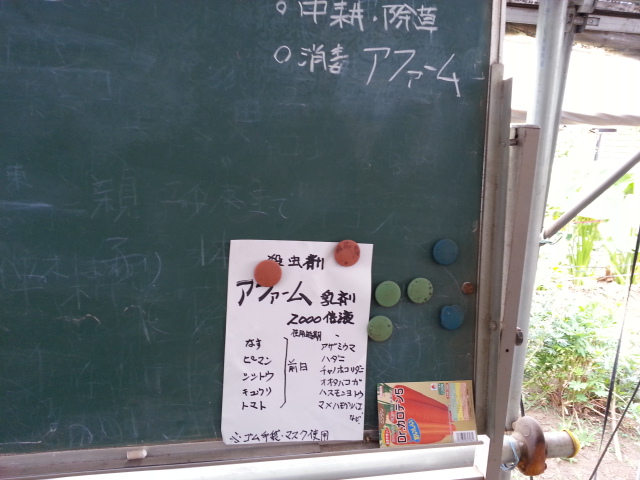 ○中耕・除草
○消毒 アファーム
殺虫剤
アファーム乳剤
2000倍液
使用時期
なす
ピーマン
シシトウ
キュウリ
トマト
前日
アザミウマ
ハダニ
チャノホコリダニ
オオタバコガ
ハスモンヨトウ
マメハモグリバエ
など
※ゴム手袋・マスク使用
Dr.カロテン5